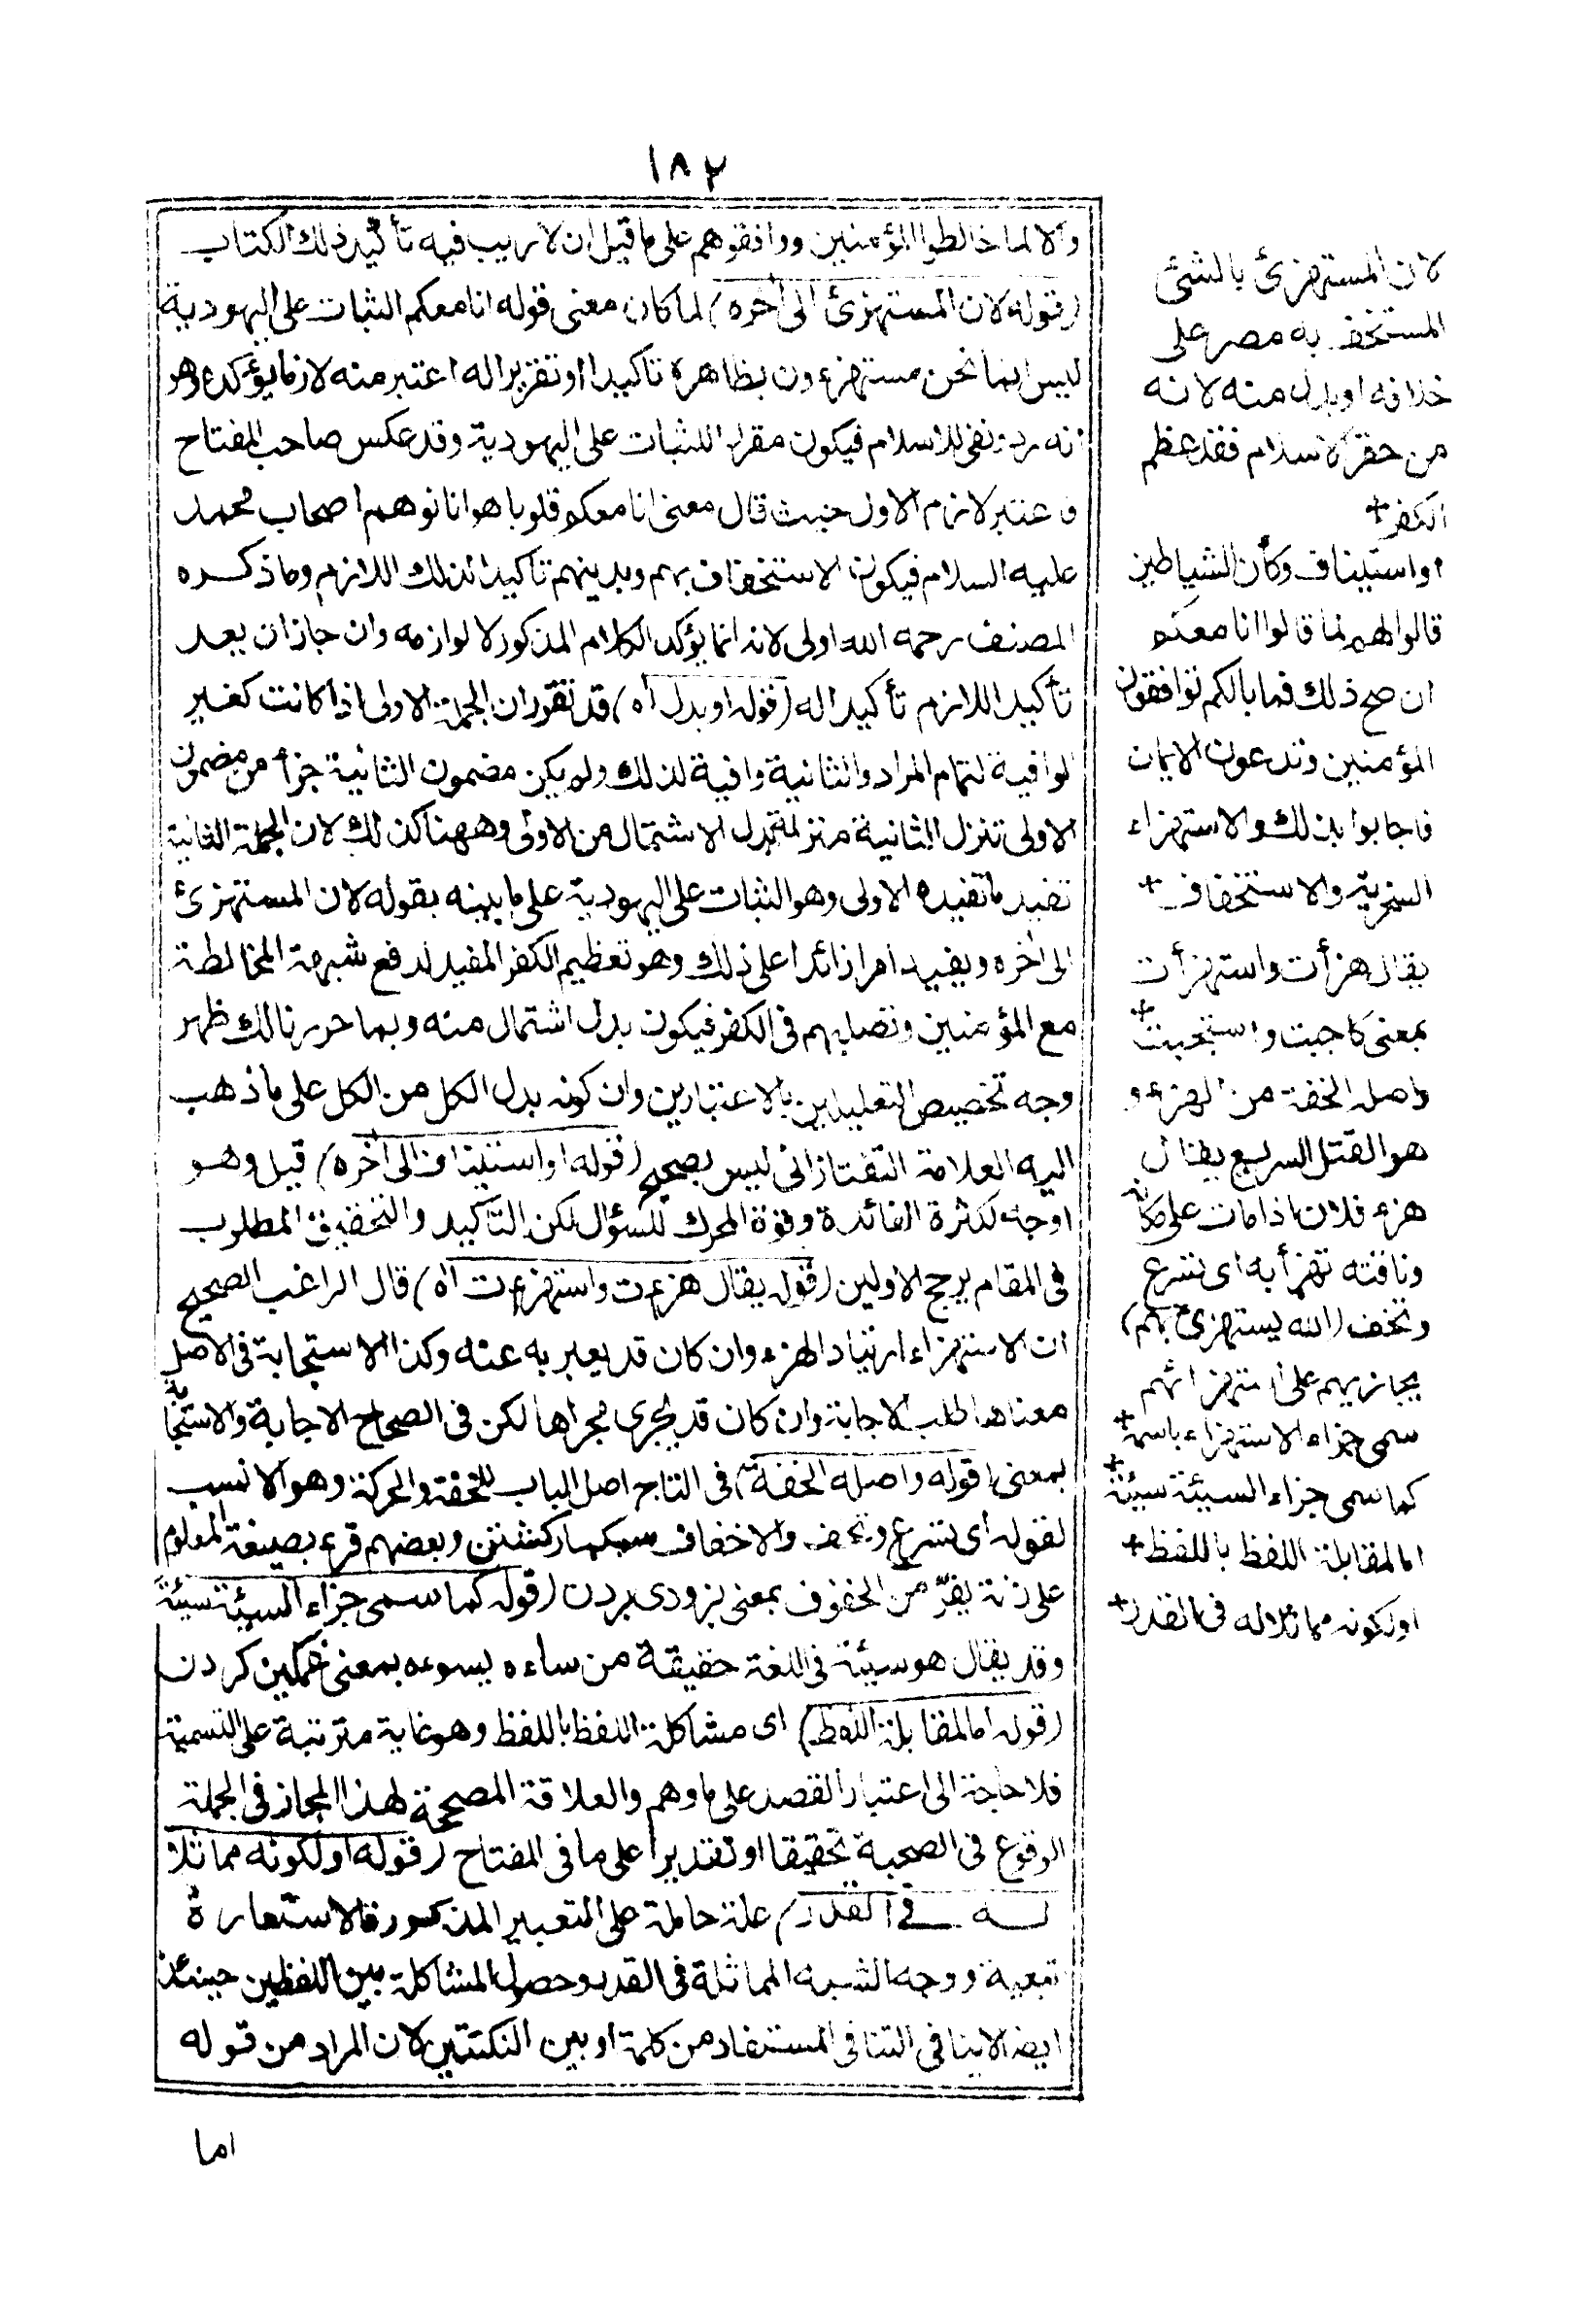 ١٨٢
والا لما خالطوا المؤمنين ووافقوهم على ما قيل ان لا ريب فيه تأكيد ذلك الكتاب
(قوله لان المستهزئ الى اخره) لما كان معنى قوله انا معكم الثبات على اليهودية
ليس انما نحن مستهزءون بظاهره تاكيدا او تقريرا له اعتبر منه لازما يؤكده وهو
انه رد ونفى للاسلام فيكون مقررا للثبات على اليهودية وقد عكس صاحب المفتاح
فاعتبر لازم الاول حيث قال معنى انا معكم قلوبا هو انا نوهم اصحاب محمد
عليه السلام فيكون الاستخفاف بهم وبدينهم تاكيدا لذلك اللازم وما ذكره
المصنف رحمه الله اولى لانه انما يؤكد الكلام المذكور لا لوازمه وان جاز ان يعد
تأكيد اللازم تأكيدا له (قوله او بدل اه) قد تقرر ان الجملة الاولى اذا كانت كغير
لوافية لتمام المراد والثانية وافية لذلك ولم يكن مضمون الثانية جزأ من مضمون
الاولى تنزل الثانية منزلة بدل الاشتمال من الاولى وههنا كذلك لان الجملة الثانية
تفيد ما تفيده الاولى وهو الثبات على اليهودية على ما بينه بقوله لان المستهزئ
الى اخره ويفيد امرا زائدا على ذلك وهو تعظيم الكفر المفيد لدفع شبهة المخالطة
مع المؤمنين وتصلبهم فى الكفر فيكون بدل اشتمال منه وبما حررنا لك ظهر
وجه تخصيص التعليلين بالاعتبارين وان كونه بدل الكل من الكل على ما ذهب
اليه العلامة التفتازانى ليس بصحيح (قوله او استيناف الى اخره) قيل وهو
اوجه لكثرة الفائدة وقوة المحرك للسؤال لكن التأكيد والتحقيق المطلوب
فى المقام يرجح الاولين (قوله يقال هزءت واستهزءت اه) قال الراغب الصحيح
ان الاستهزاء ارتياد الهزء وان كان قد يعبر به عنه وكذا الاستجابة فى الاصل
معناها طلب الاجابة وان كان قد يجرى مجراها لكن فى الصحاح الاجابة والاستجابة
بمعنى (قوله واصله الخفة) فى التاج اصل الباب للخفة والحركة وهو الانسب
لقوله اى تسرع وتخف والاخفاف سبكبار كشتن وبعضهم قرء بصيغة المعلوم
على زنة يفرّ من الخفوف بمعنى بزودى بردن (قوله كما سمى جزاء السيئة سيئة
وقد يقال هو سيئة فى اللغة حقيقة من ساءه يسوءه بمعنى غمكين كردن
(قوله اما لمقابلة اللفظ) اى مشاكلة اللفظ باللفظ وهو غاية مترتبة على التسمية
فلا حاجة الى اعتبار القصد على ما وهم والعلاقة المصححة لهذا المجاز فى الجملة
الوقوع فى الصحبة تحقيقا او تقديرا على ما فى المفتاح (قوله او لكونه مماثلا
له فى القدر) علة حاملة على التعبير المذكور فالاستعارة
تبعية ووجه الشبه المماثلة فى القدر وحصول المشاكلة بين اللفظين حينئذ
ايضا لا ينافى التنافى المستفاد من كلمة او بين النكتتين لان المراد من قوله
اما
لان المستهزئ بالشئ
المستخف به مصر على
خلافه او بدل منه لانه
من حقر الاسلام فقد عظم
الكفر +
او استيناف وكأن الشياطين
قالوا لهم لما قالوا انا معكم
ان صح ذلك فما بالكم توافقون
المؤمنين وتدعون الايمان
فاجابوا بذلك والاستهزاء
السخرية والاستخفاف +
يقال هزأت واستهزأت
بمعنى كاجبت واستجبت +
واصله الخفة من الهزء و
هو القتل السريع يقال
هزء فلان اذا مات على مكانه
وناقته تهزأ به اى تسرع
وتخف (الله يستهزئ بهم)
يجازيهم على استهزائهم
سمى جزاء الاستهزاء باسمه +
كما سمى جزاء السيئة سيئة +
اما لمقابلة اللفظ باللفظ +
او لكونه مماثلا له فى القدر +